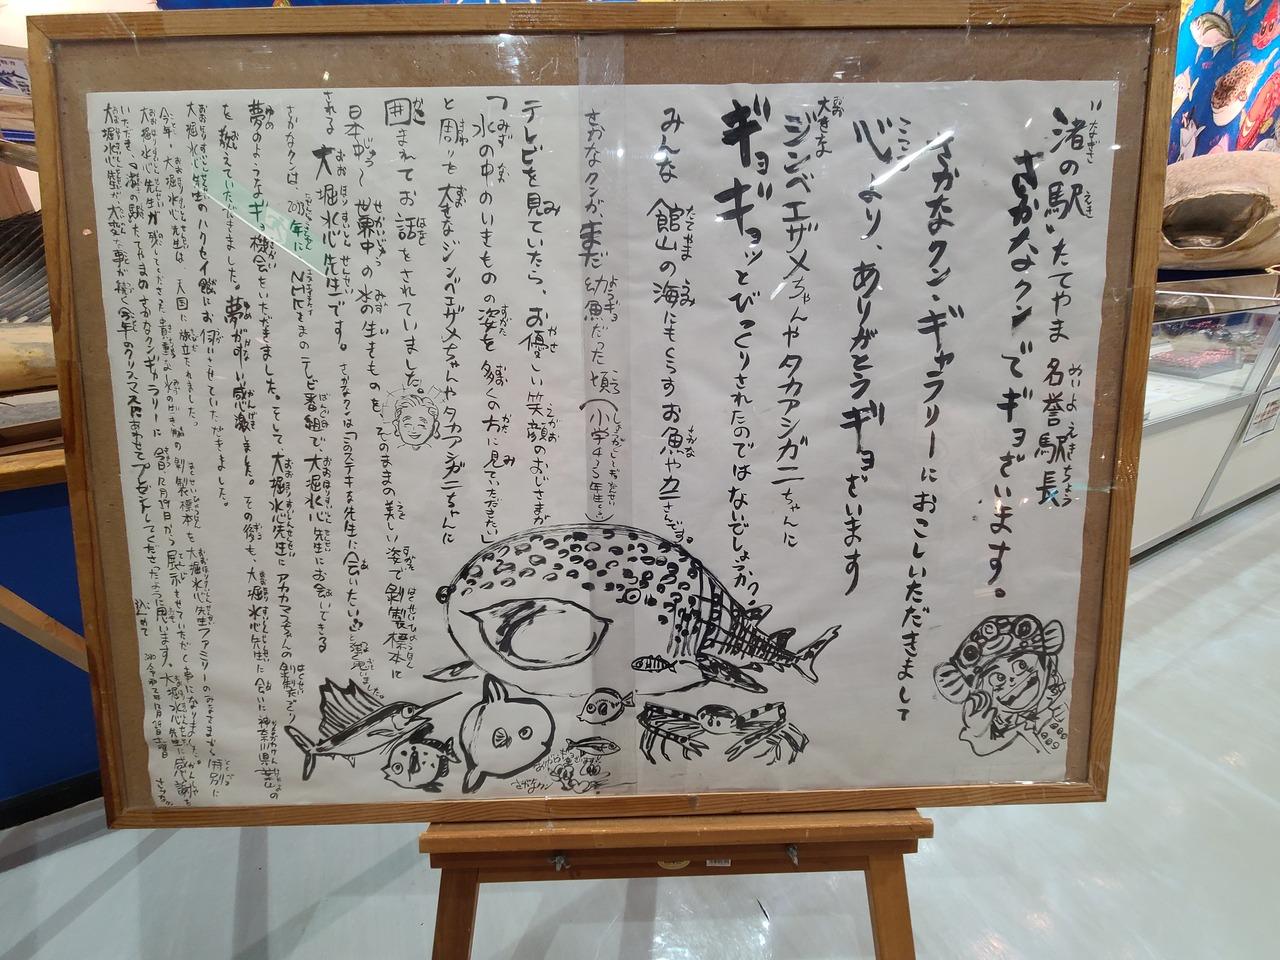 "渚の駅"たてやま 名誉駅長
さかなクンでギョざいます。
さかなクン・ギャラリーにおこしいただきまして
心より、ありがとうギョざいます
大きな
ジンベエザメちゃんやタカアシガニちゃんに
ギョギョッとびっくりされたのではないでしょうか
みんな 館山の海にもくらすお魚やカニさんです。
さかなクンが、まだ幼魚だった頃
テレビを見ていたら、お優しい笑顔のおじさまが
「水の中のいきものの姿を多くの方に見ていただきたい」
と周りを大きなジンベエザメちゃんやタカアシガニちゃんに
囲まれてお話をされていました。
日本中〜世界中の水の生きものを、そのままの美しい姿で剝製標本に
される 大堀水心先生です。 さかなクンは「このステキな先生に会いたい」と
さかなクンは、 年に NHKさまのテレビ番組で大堀水心先生にお会いできる
夢のようなギョ機会をいただきました。そして大堀水心先生にアカマスちゃんの剝製づくり
を教えていただきました。夢が叶い感激しました。その後も、大堀水心先生に会いに神奈川県葉山の
大堀水心先生のハクセイ館にお伺いさせていただきました。
今年、大堀水心先生は、天国に旅立たれました。
大堀水心先生が残してくださった貴重な 剝製標本を大堀水心先生ファミリーのみなさまから特別に
いただき、"渚の駅"たてやまのさかなクンギャラリーに令和 年12月19日から展示させていただく事になりました。
大堀水心先生が 今年のクリスマスにあわせてプレゼントしてくださったように思います。大堀水心先生に感謝を
込めて
さかなクン